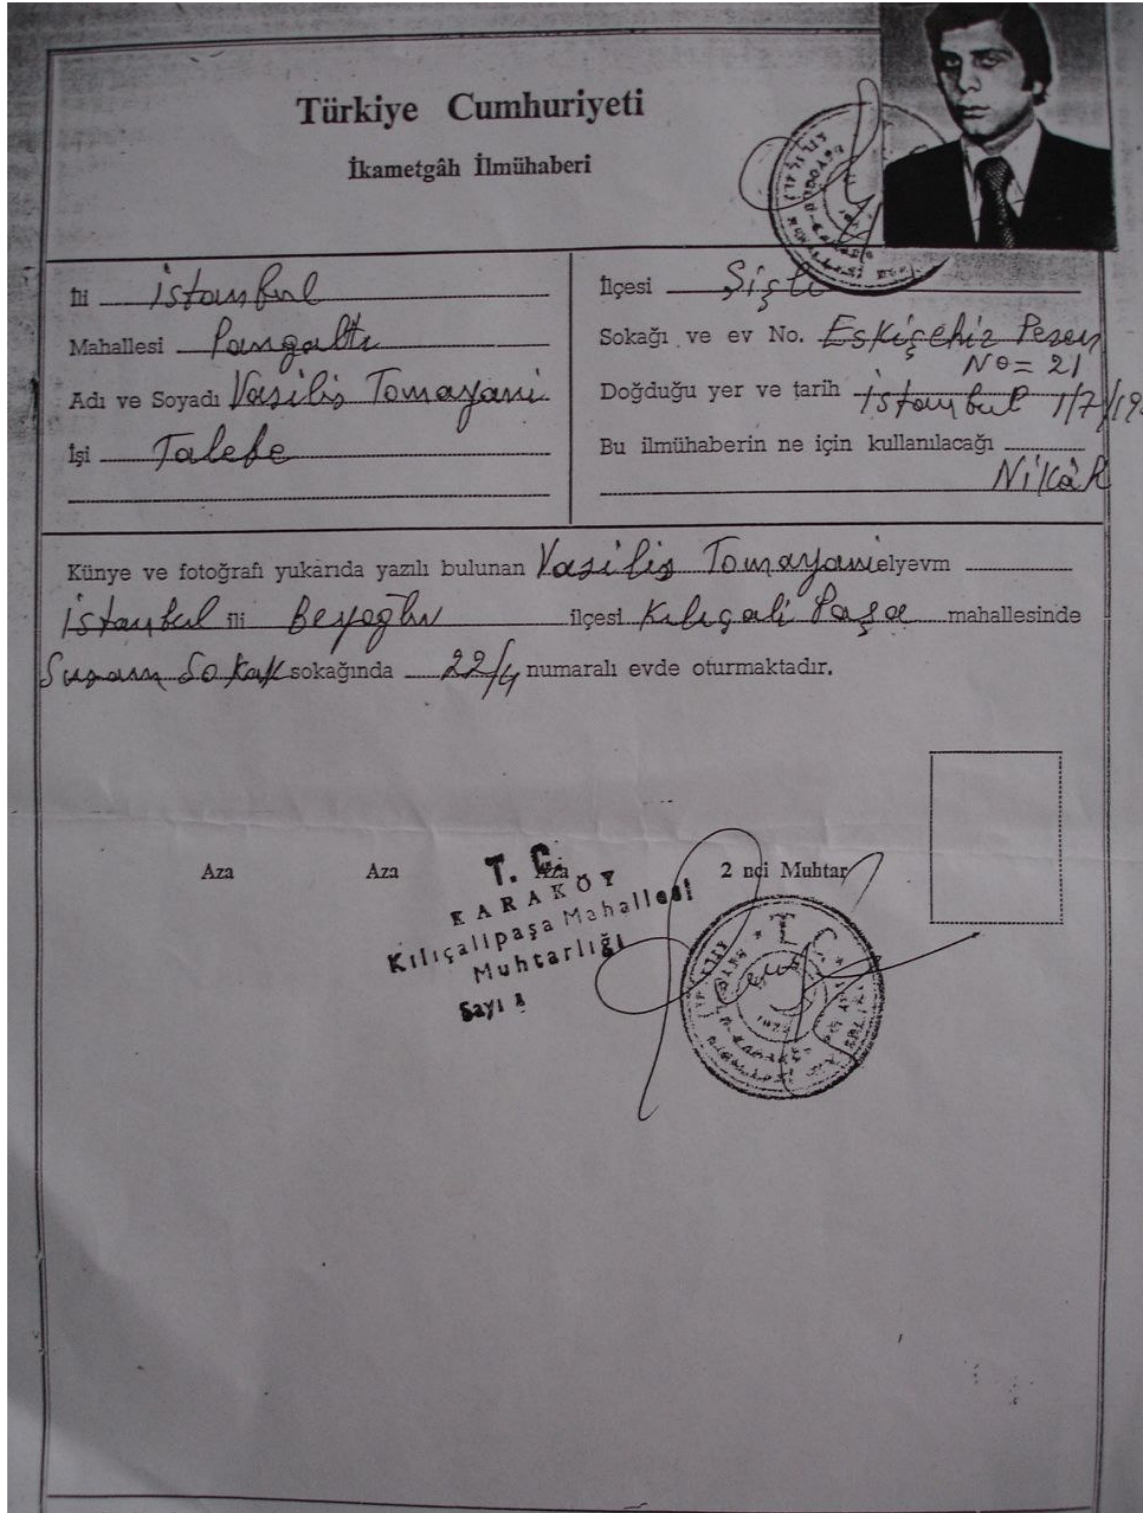 Türkiye Cumhuriyeti
İkametgâh İlmühaberi
İli İstanbul
Mahallesi Pangaltı
Adı ve Soyadı Vasilis Tomayani
İşi Talebe
İlçesi Şişli
Sokağı ve ev No. Eskişehir
No= 21
Doğduğu yer ve tarih İstanbul 1/7/19
Bu ilmühaberin ne için kullanılacağı
Nikâh
Künye ve fotoğrafı yukarıda yazılı bulunan Vasilis Tomayani elyevm
İstanbul ili Beyoğlu ilçesi Kılıçali Paşa mahallesinde
Susam Sokak sokağında 22/4 numaralı evde oturmaktadır.
Aza Aza Aza 2 nci Muhtar
T. C.
KARAKÖY
Kılıçalipaşa Mahallesi
Muhtarlığı
Sayı
T.C.